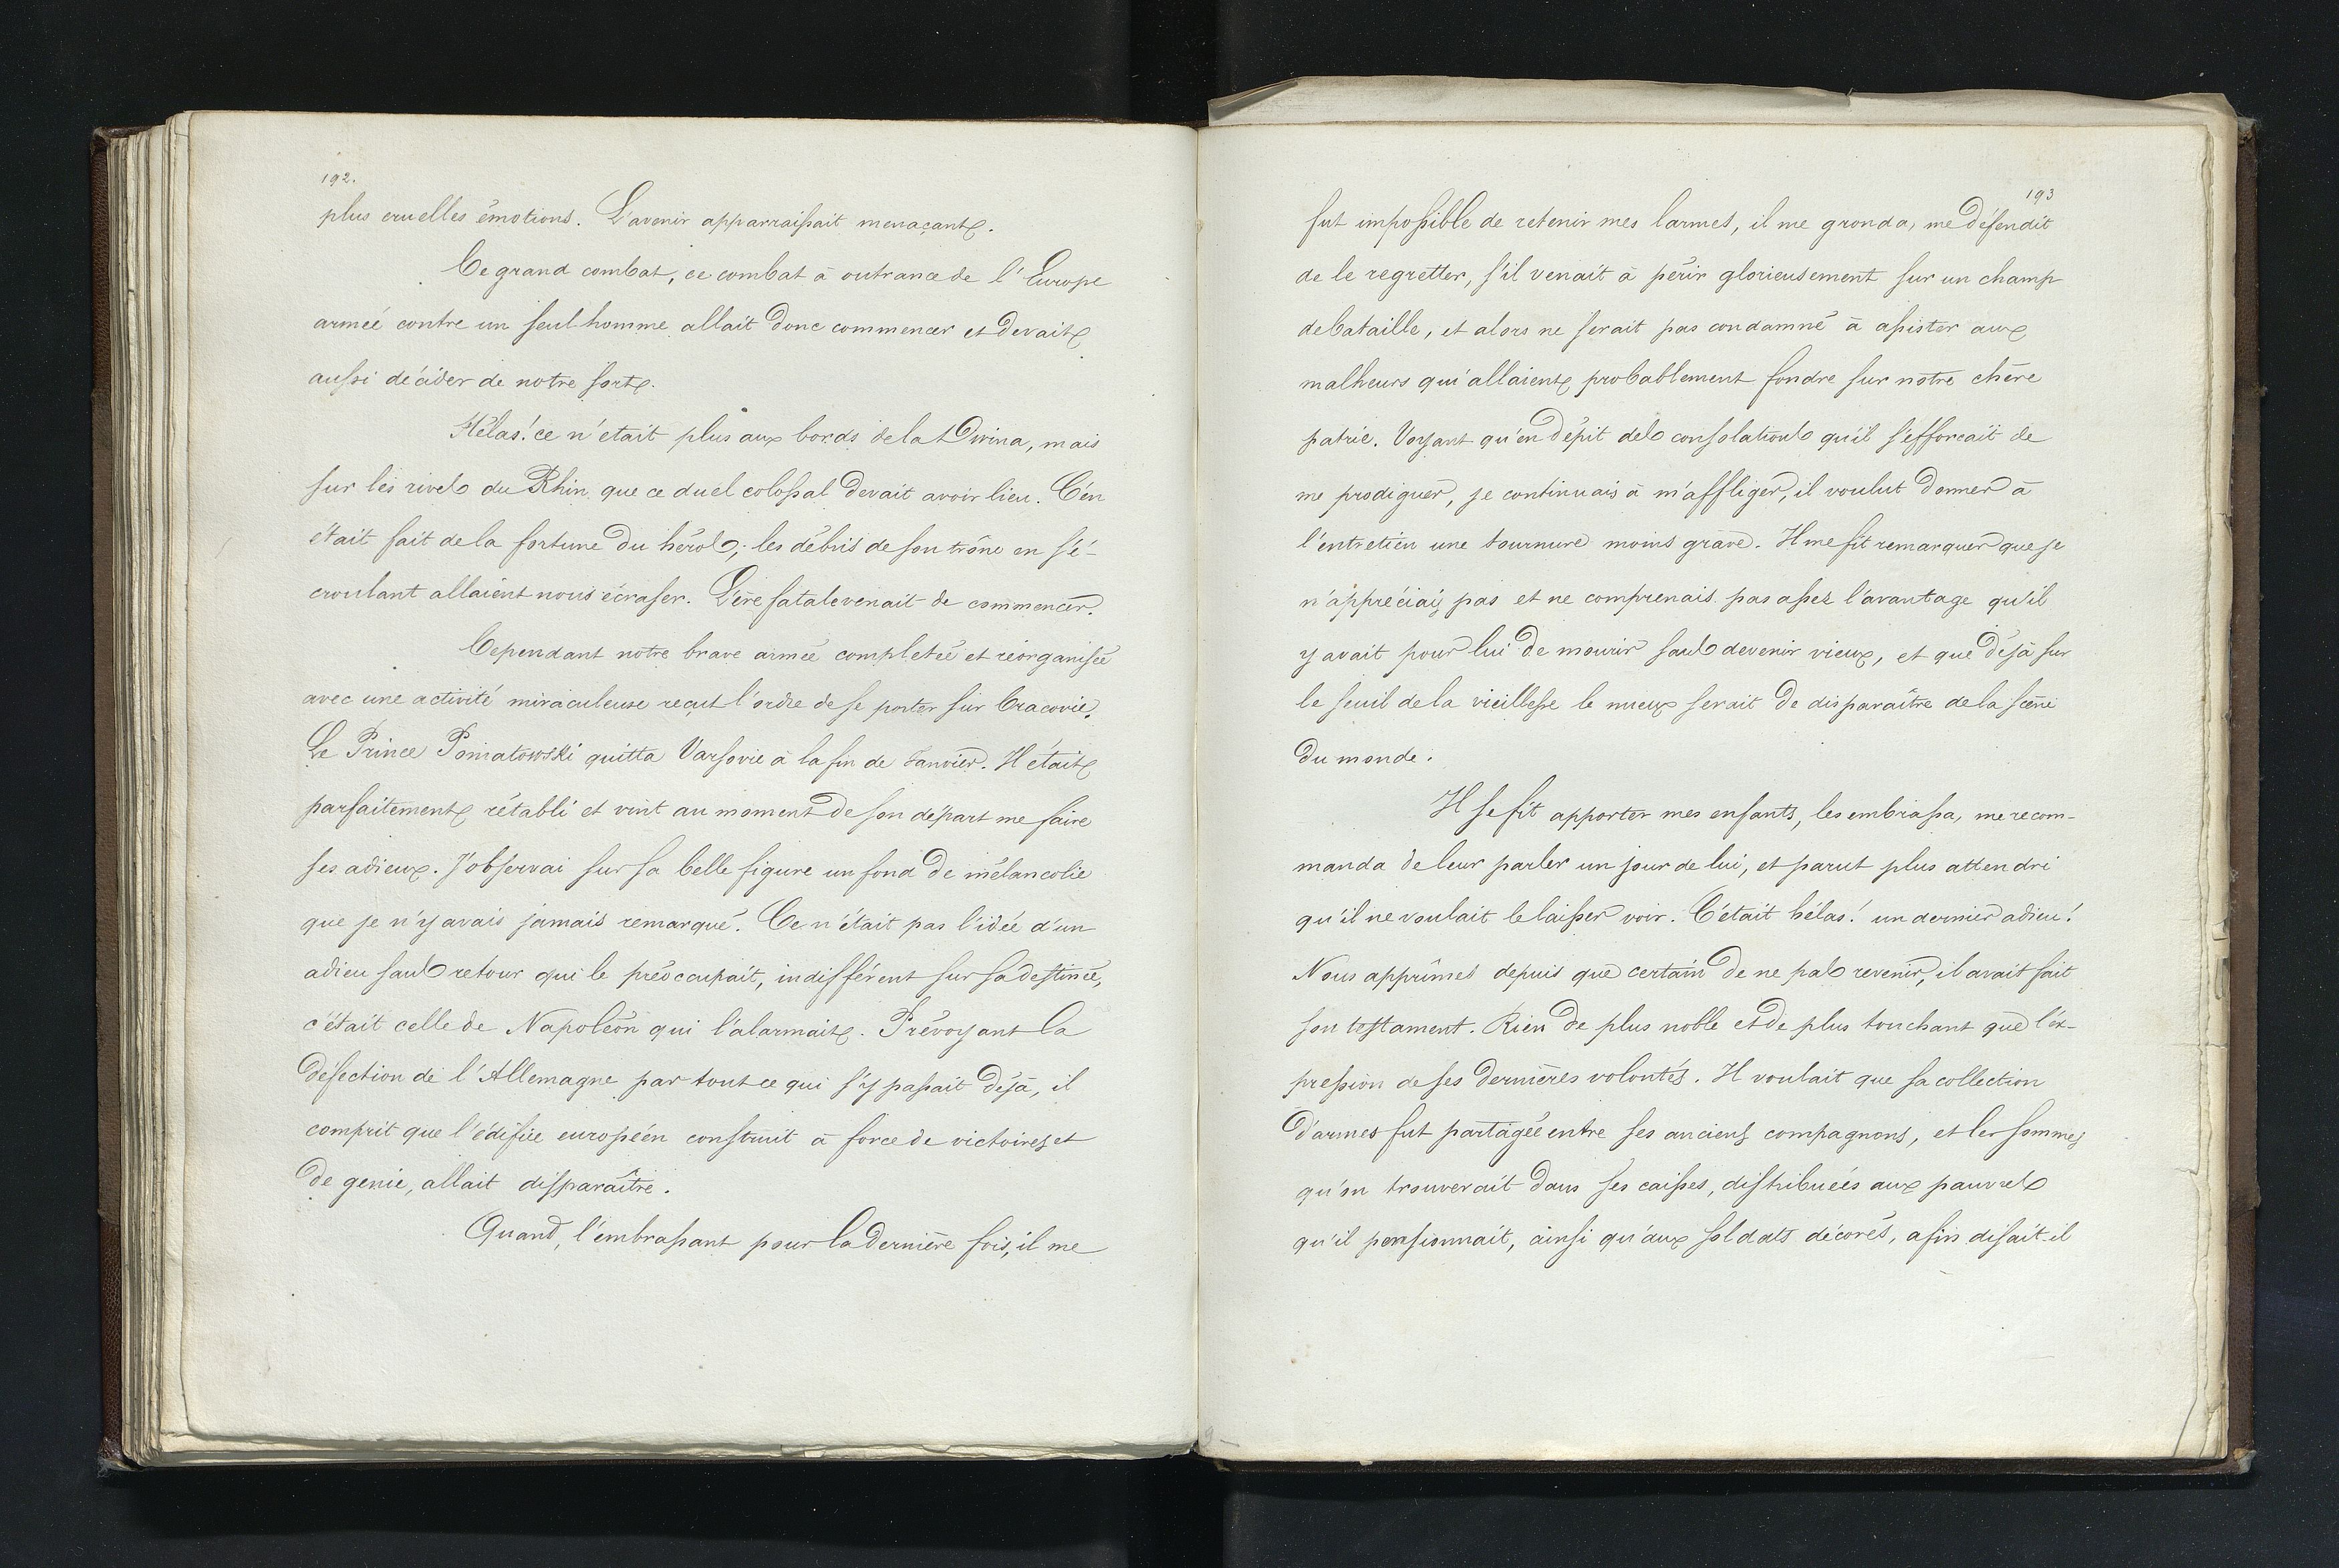 192.
plus cruelles émotions. L'avenir apparraissait menaçant.
Ce grand combat, ce combat à outrance de l'Europe
armée contre un seul homme allait donc commencer et devait
aussi décider de notre sort.
Hélas! ce n'etait plus aux bords de la Dwina, mais
sur les rives du Rhin que ce duel colossal devait avoir lieu. C'en
était fait de la fortune du héros; les débris de son trône en s'é-
croulant allaient nous écraser. L'ère fatale venait de commencer.
Cependant notre brave armée completée et réorganisée
avec une activité miraculeuse reçut l'ordre de se porter sur Cracovie.
Le Prince Poniatowski quitta Varsovie à la fin de Janvier. Il était
parfaitement rétabli et vint au moment de son départ me faire
ses adieux. J'observai sur sa belle figure un fond de mélancolie
que je n'y avais jamais remarqué. Ce n'était pas l'idée d'un
adieu sans retour qui le préoccupait, indifférent sur sa destinée,
c'était celle de Napoléon qui l'alarmait. Prévoyant la
défection de l'Allemagne par tout ce qui s'y passait déjà, il
comprit que l'édifice européen construit à force de victoires et
de genie, allait disparaître.
Quand, l'embrassant pour la dernière fois, il me
193
fut impossible de retenir mes larmes, il me gronda, me défendit
de le regretter, s'il venait à périr glorieusement sur un champ
de bataille, et alors ne serait pas condamné à assister aux
malheurs qui allaient probablement fondre sur notre chère
patrie. Voyant qu'en dépit des consolations qu'il s'efforcait de
me prodiguer, je continuais à m'affliger, il voulut donner à
l'entretien une tournure moins grave. Il me fit remarquer que je
n'appréciais pas et ne comprenais pas assez l'avantage qu'il
y avait pour lui de mourir sans devenir vieux, et que déjà sur
le seuil de la vieillesse le mieux serait de disparaître de la scène
du monde.
Il se fit apporter mes enfants, les embrassa, me recom-
manda de leur parler un jour de lui, et parut plus attendri
qu'il ne voulait le laisser voir. C'était hélas! un dernier adieu!
Nous apprîmes depuis que certain de ne pas revenir, il avait fait
son testament. Rien de plus noble et de plus touchant que l'ex-
pression de ses dernières volontés. Il voulait que sa collection
d'armes fut partagée entre ses anciens compagnons, et les sommes
qu'on trouverait dans ses caisses, distribuées aux pauvres
qu'il pensionnait, ainsi qu'aux soldats décorés, afin disait-il